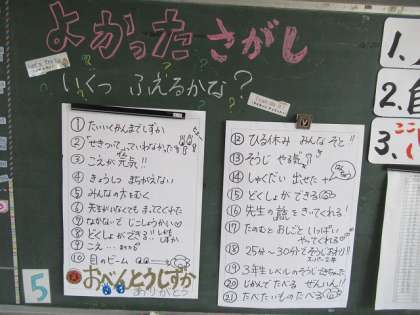 よかったさがし
いくつ ふえるかな?
① たいいくかんまでしずか
② 「せきついて」っていわなかった
③ こえが元気!!
④ きょうしつ まちがえない
⑤ みんなの方をむく
⑥ 先生がいなくても まっててくれた
⑦ なかないで じこしょうかい
⑧ どくしょができる!!
⑨ こえ…
⑩ 目のビーム
おべんとうしずか
ありがとう
5
⑫ ひる休み みんな そと!!
⑬ そうじ やる気
⑭ しゅくだい 出せた
⑮ どくしょができる
⑯ 先生の話をきってくれる!
⑰ たのむと おしごと いっぱい
やってくれる
⑱ 25分〜30分でそうじおわり!!
⑲ 3年生レベルのそうじできちゃった
⑳ じかんでたべる ぜんいん!!
㉑ たべたいものたべる
1.
2.
3.